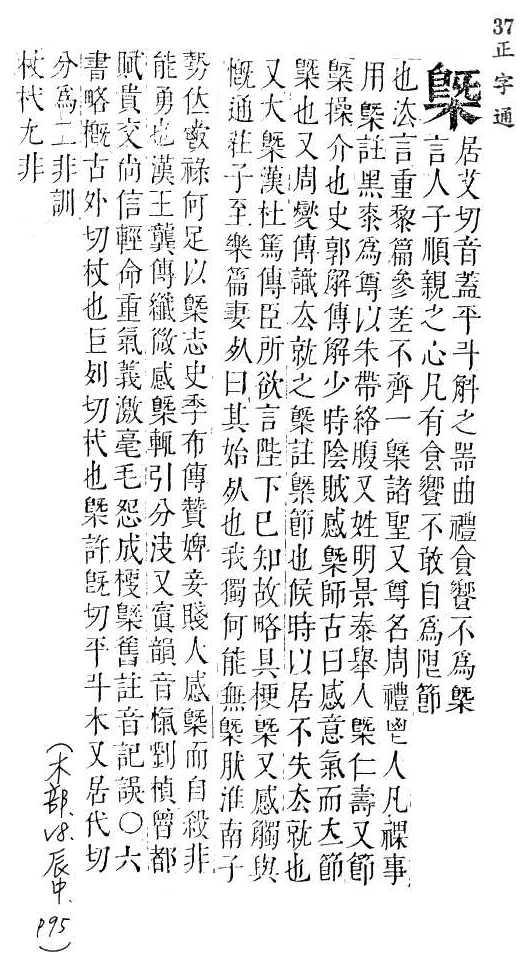 37正字通
槩 居艾切音蓋平斗斛之器曲禮食饗不爲槩
言人子順親之心凡有食饗不敢自爲限節
也法言重黎篇參差不齊一槩諸聖又尊名周禮鬯人凡祼事
用槩註黑桼爲尊以朱帶絡腹又姓明景泰舉人槩仁壽又節
槩操介也史郭解傳解少時陰賊感槩師古曰感意氣而立節
槩也又周燮傳識去就之槩註槩節也候時以居不失去就也
又大槩漢杜篤傳臣所欲言陛下已知故略具梗槩又感觸與
慨通莊子至樂篇妻死曰其始死也我獨何能無槩肰淮南子
勢位爵祿何足以槩志史季布傳贊婢妾賤人感槩而自殺非
能勇也漢王龔傳纖微感槩輒引分決又寘韻音愾劉楨魯都
賦貴交尚信輕命重氣義激毫毛怨成梗槩舊註音記誤〇六
書略槪古外切杖也巨列切杙也槩許旣切平斗木又居代切
分爲二非訓
杖杙尤非
(木部.48.辰中.
P95)